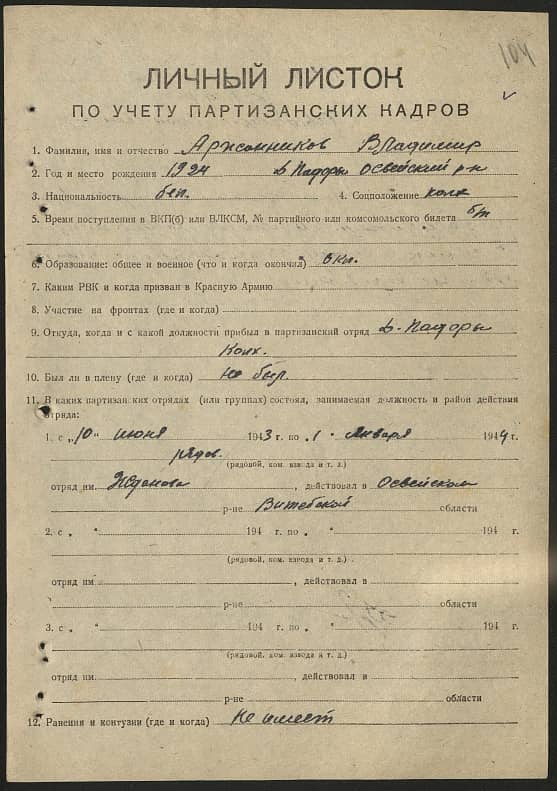 104
ЛИЧНЫЙ ЛИСТОК
ПО УЧЕТУ ПАРТИЗАНСКИХ КАДРОВ
1. Фамилия, имя и отчество Аржанников Владимир
2. Год и место рождения 1924 д. Падоры Освейский р-н
3. Национальность бел. 4. Соцположение колх
5. Время поступления в ВКП(б) или ВЛКСМ, № партийного или комсомольского билета б/п
6. Образование: общее и военное (что и когда окончил) 8 кл.
7. Каким РВК и когда призван в Красную Армию
8. Участие на фронтах (где и когда)
9. Откуда, когда и с какой должности прибыл в партизанский отряд д. Падоры
Колх.
10. Был ли в плену (где и когда) Не был.
11. В каких партизанских отрядах (или группах) состоял, занимаемая должность и район действия
отряда:
1. с „10" июня 1943 г. по „1" января 1944 г.
рядов.
(рядовой, ком. взвода и т. д.)
отряд им. Жданова, действовал в Освейском
р-не Витебской области
2. с „ " 194 г. по „ " 194 г.
(рядовой, ком. взвода и т. д.)
отряд им., действовал в
р-не области
3. с „ " 194 г. по „ " 194 г.
(рядовой, ком. взвода и т. д.)
отряд им., действовал в
р-не области
12. Ранения и контузии (где и когда) Не имеет